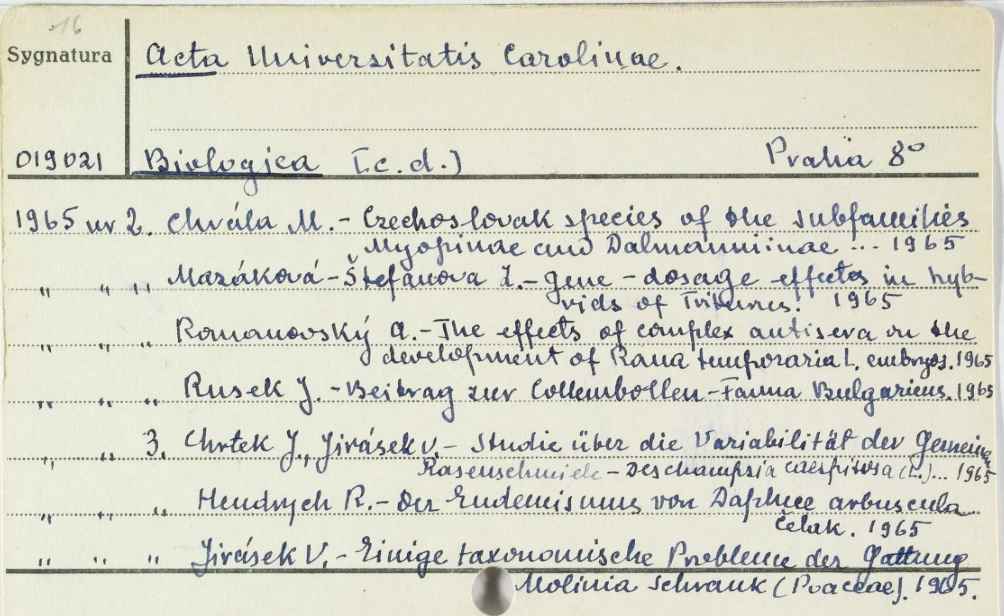 16
Sygnatura Acta Universitatis Carolinae.
019021 Biologica [c.d.] Praha 8°
1965 nr 2. Chvála M. - Czechoslovak species of the subfamilies
Myopinae and Dalmanniinae ... 1965
" " " Mazáková-Štefanova Z. - Gene-dosage effects in hyb-
rids of Triturus. 1965
" " " Romanovský A. - The effects of complex antisera on the
development of Rana temporaria L. embryos. 1965
" " " Rusek J. - Beitrag zur Collembollen-Fauna Bulgariens. 1965
" " 3. Chrtek J., Jirásek V. - Studie über die Variabilität der Gemeinen
Rasenschmiele - Deschampsia caespitosa (L.) ... 1965
" " " Hendrych R. - Der Endemismus von Daphne arbuscula
Čelak. 1965
" " " Jirásek V. - Einige taxonomische Probleme der Gattung
Molinia Schrank (Poaceae). 1965.